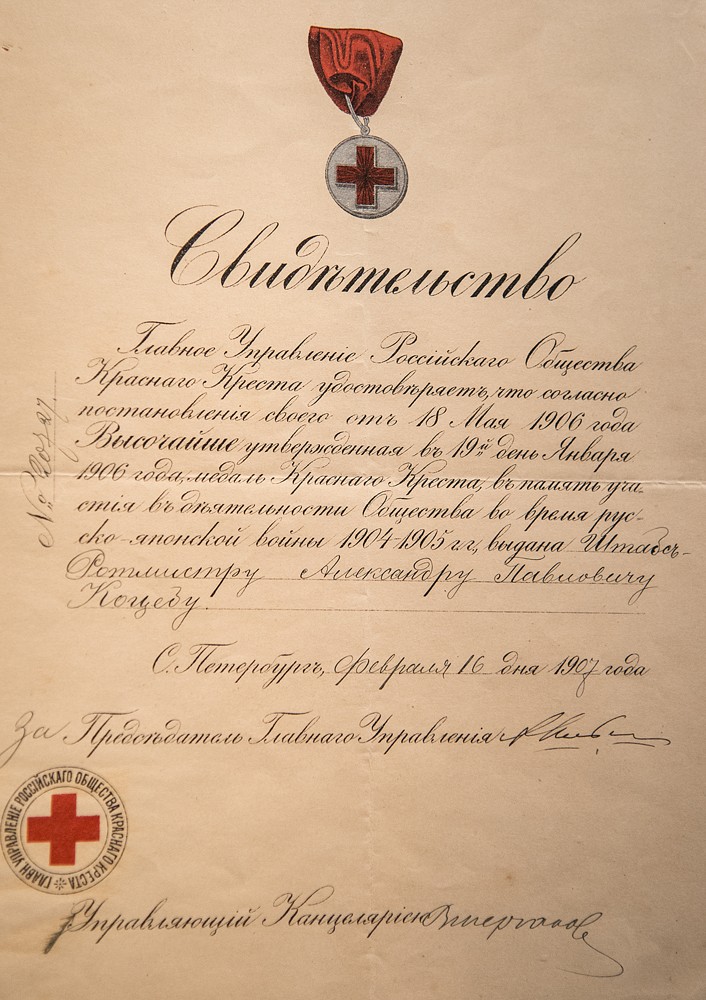 Свидѣтельство
Главное Управленіе Россійскаго Общества
Краснаго Креста удостовѣряетъ, что согласно
постановленія своего отъ 18 Мая 1906 года
Высочайше утвержденная въ 19й день Января
1906 года, медаль Краснаго Креста, въ память уча-
стія въ дѣятельности Общества во время рус-
ско-японской войны 1904-1905 г.г, выдана Штабсъ-
Ротмистру Александру Павловичу
Коцеву
№
С. Петербургъ, Февраля 16 дня 1907 года
За Предсѣдатель Главнаго Управленія
ГЛАВН УПРАВЛЕНІЕ РОССІЙСКАГО ОБЩЕСТВА КРАСНАГО КРЕСТА
Управляющій Канцеляріею